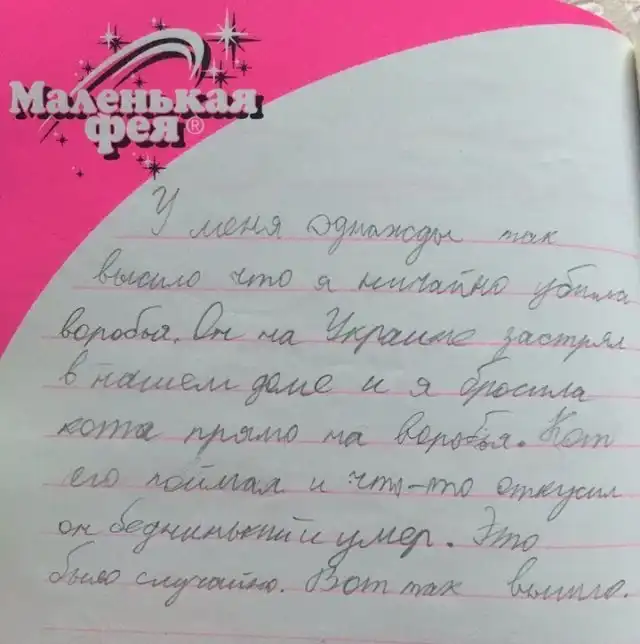 Маленькая
фея®
У меня однажды так
высило что я ничайно убила
воробья. Он на Украине застрял
в нашем доме и я бросила
кота прямо на воробья. Кот
его поймал и что-то откусил
он бедниньктй и умер. Это
было случайно. Вот так вышло.